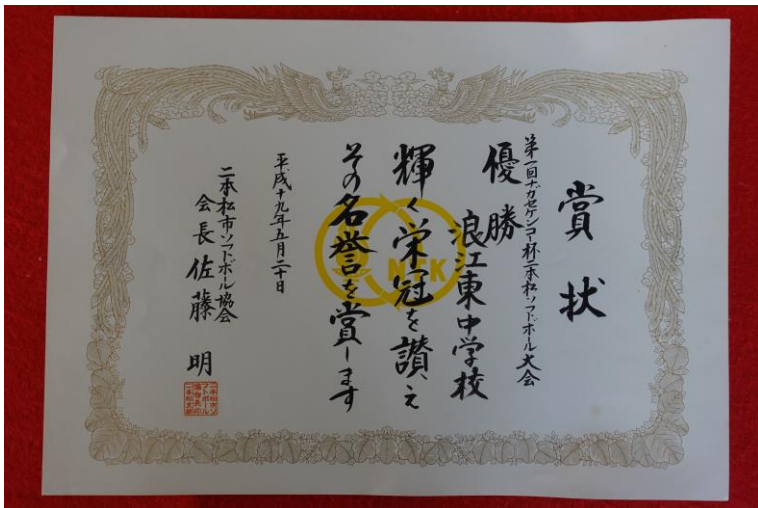 賞状
第一回ナガセケンコー杯二本松ソフトボール大会
優勝
浪江東中学校
輝く栄冠を讃え
その名誉を賞します
平成十九年五月二十日
二本松市ソフトボール協会
会長 佐藤 明
NTK